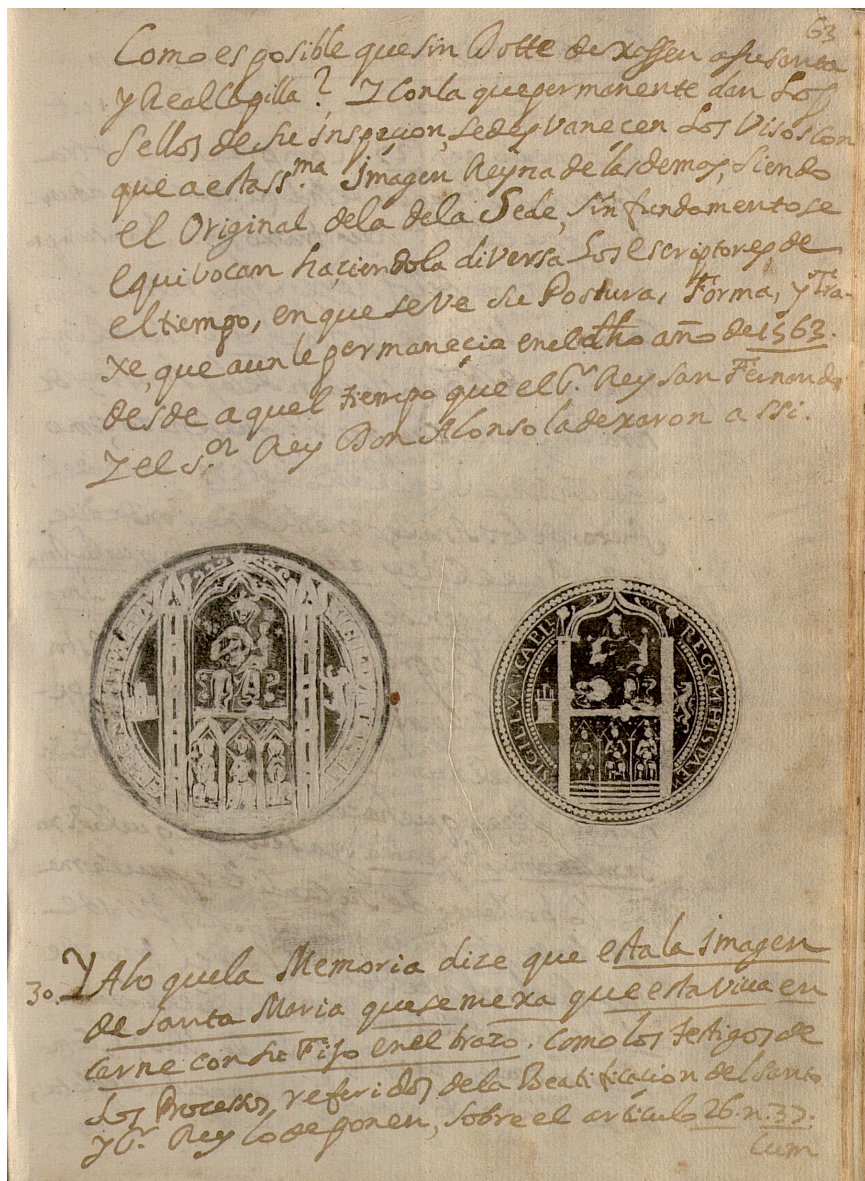 63
Como es posible que sin Dotte dexassen a su santa
y Real Capilla? Y con la que permanente dan los
sellos de su inspecion, se desvanecen los visos con
que a esta ss.ma Imagen Reyna de las demas, siendo
el Original dela dela Sede, sin fundamento se
equivocan haçiendola diversa los escriptores, de
el tiempo, en que se ve su Postura, Forma, y Tra-
xe, que aun le permanecia en el dho año de 1563.
desde aquel tiempo que el Sr. Rey san Fernando
Y el s.or Rey Don Alonso la dexaron assi.
SIGILLVM CAPILE REGVM HISPALEN
30. Y A lo que la Memoria dize que esta la imagen
de santa Maria que semexa que esta viva en
carne con su Fijo en el brazo. Como los testigos de
los Processos referidos de la Beatificacion del santo
y Sr. Rey lo deponen, sobre el articulo 26. n. 37.
Cum